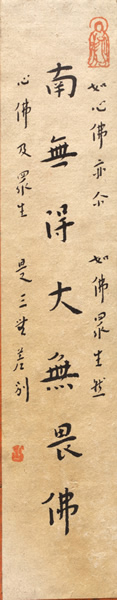 如心佛亦尒 如佛眾生然
南無得大無畏佛
心佛及眾生 是三無差別